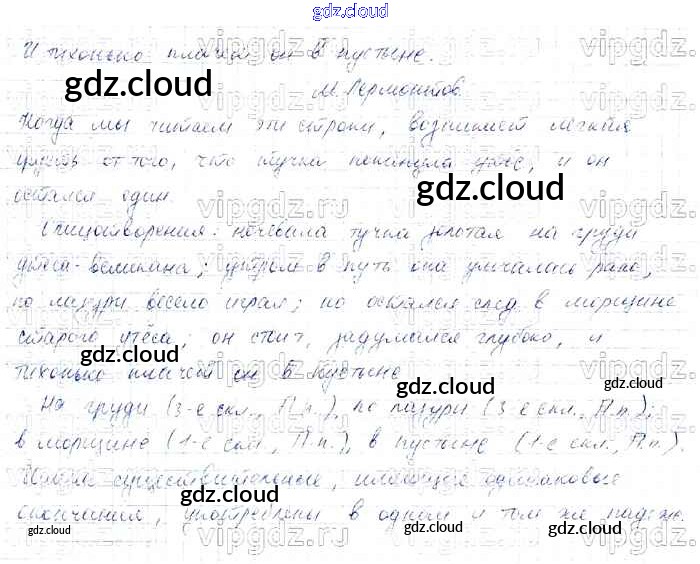 gdz.cloud
И тихонько плачет он в пустыне.
gdz.cloud
М. Лермонтов
Когда мы читаем эти строки, возникает лёгкая
грусть от того, что тучка покинула утёс, и он
остался один.
gdz.cloud
Олицетворения: ночевала тучка золотая на груди
утёса-великана; утром в путь она умчалась рано,
по лазури весело играя; но остался след в морщине
старого утёса; он стоит, задумался глубоко, и
gdz.cloud
тихонько плачет он в пустыне
gdz.cloud
На груди (3-е скл., П.п.), по лазури (3-е скл., П.п.),
в морщине (1-е скл., П.п.), в пустыне (1-е скл., П.п.).
Имена существительные, имеющие одинаковые
gdz.cloud
окончания, употреблены в одном и том же падеже.
gdz.cloud gdz.cloud gdz.cloud